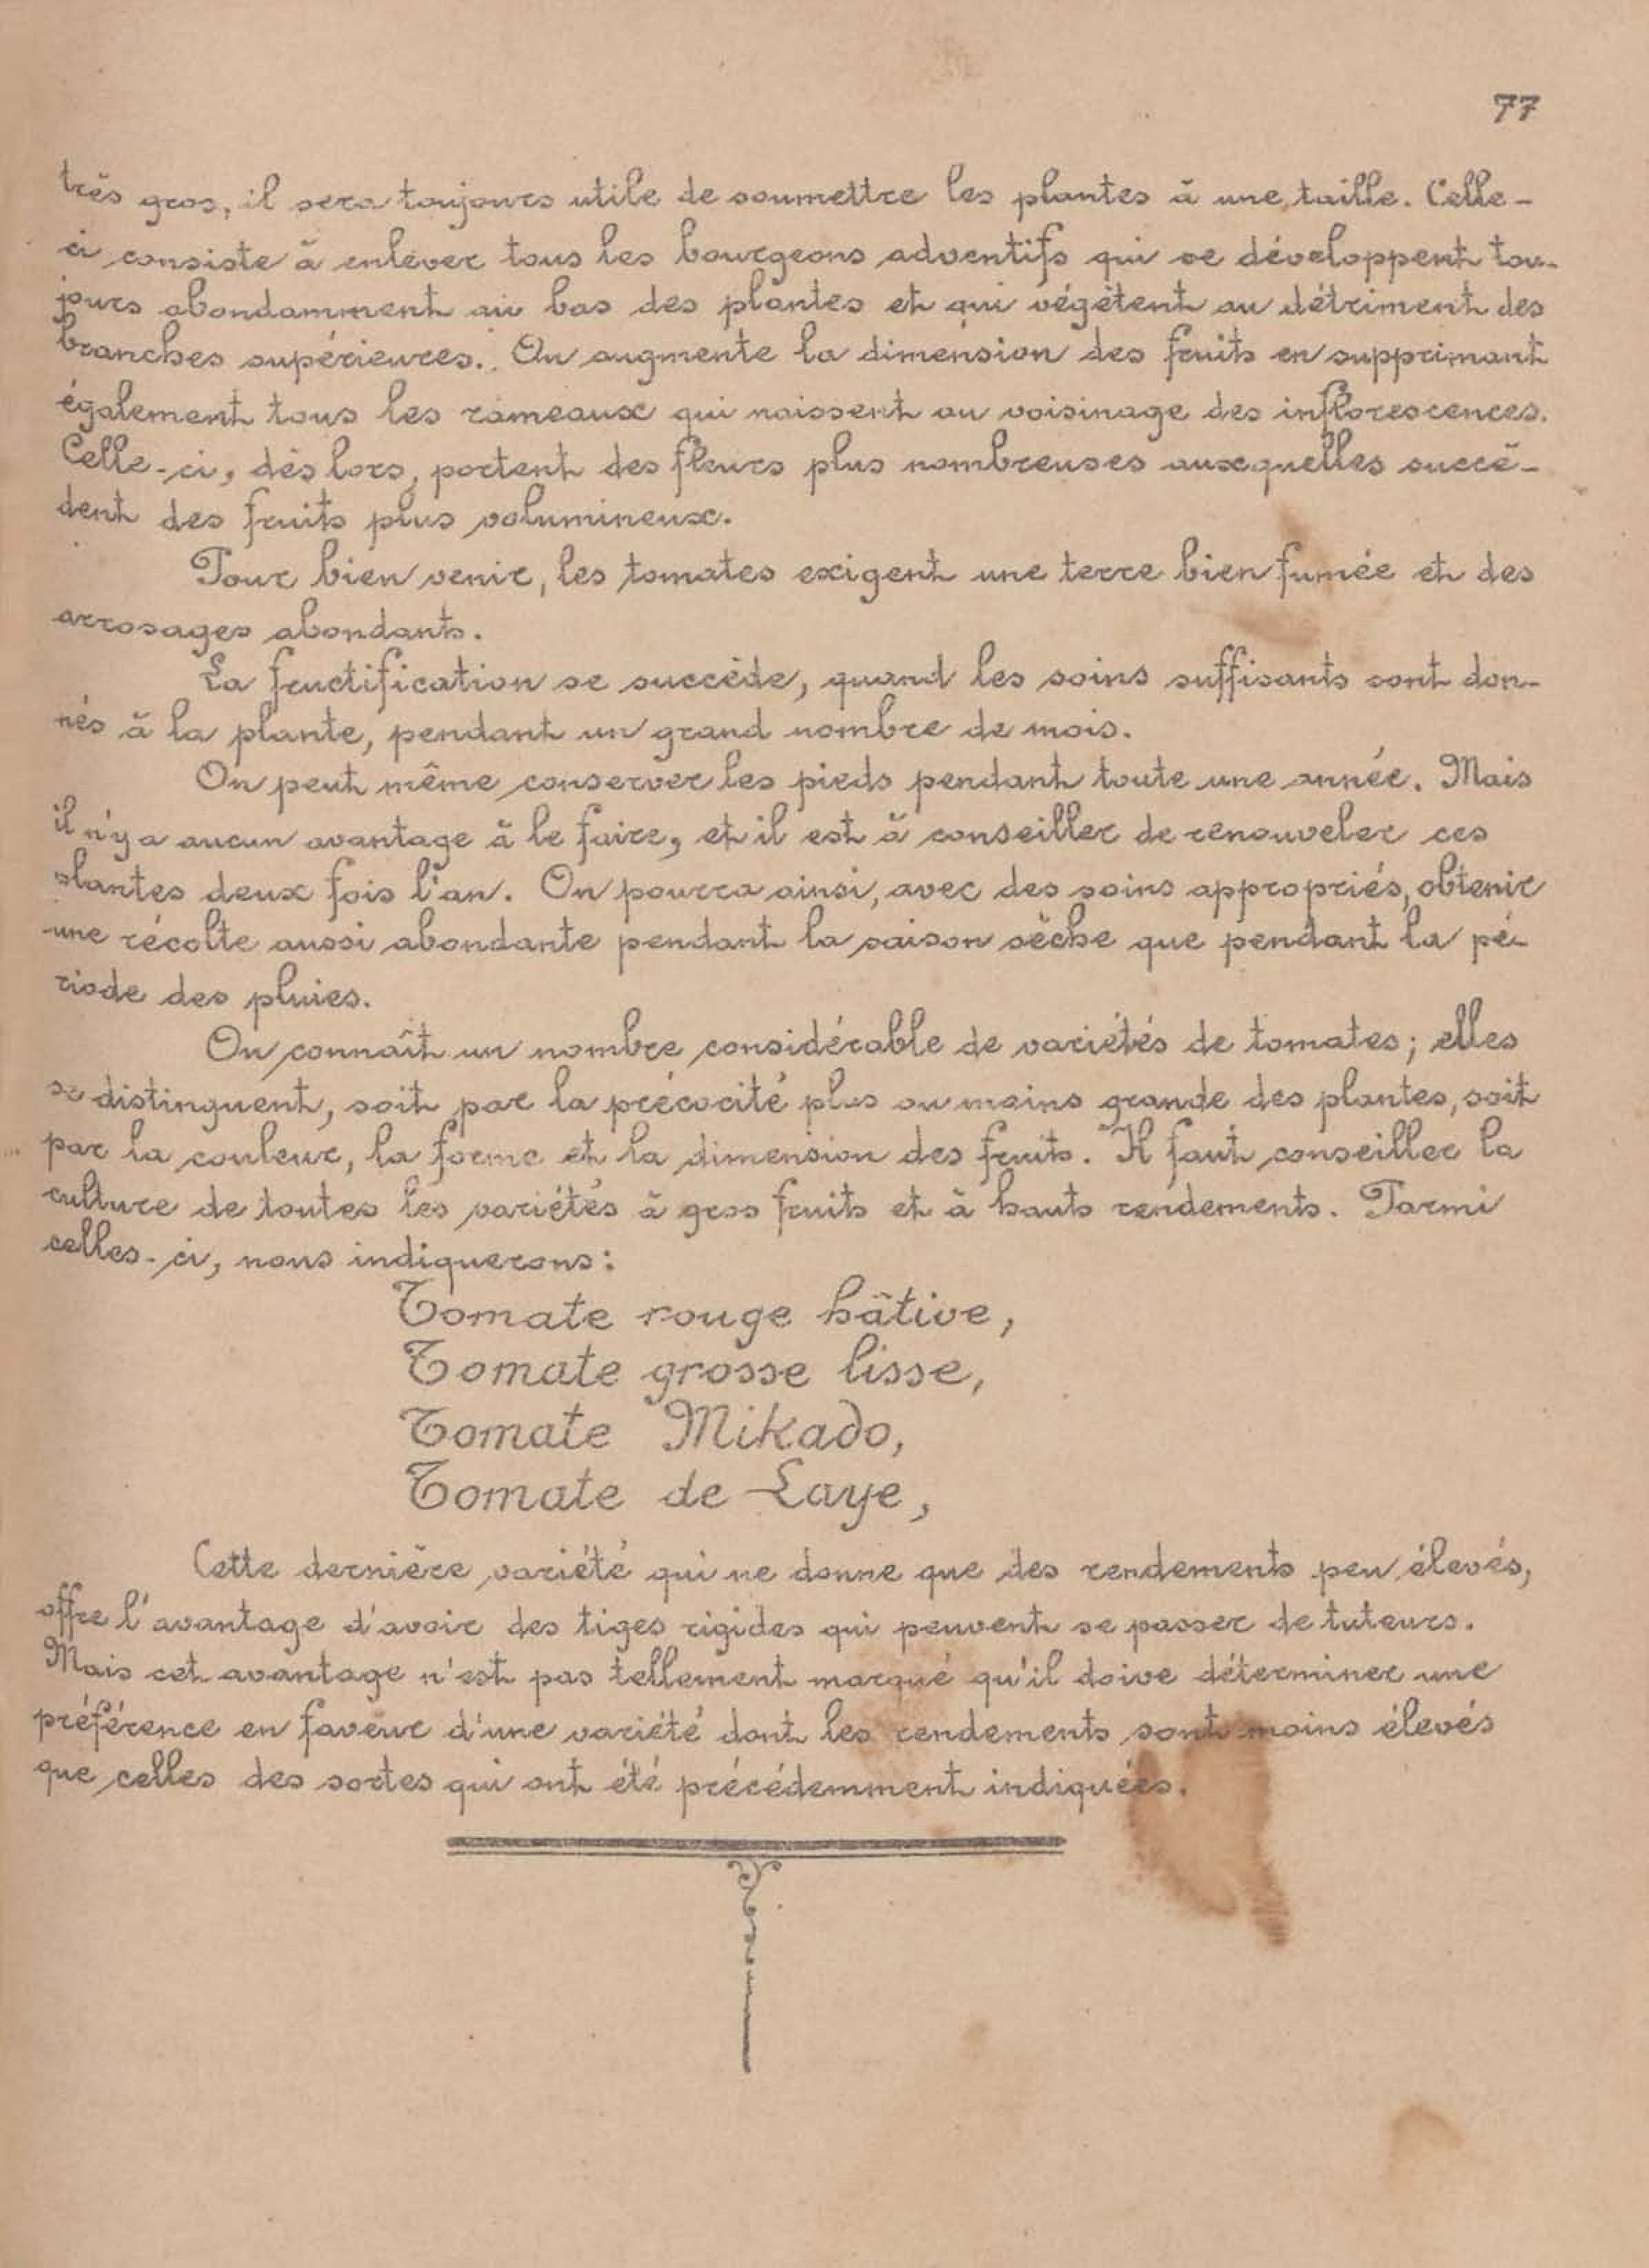 77
très gros, il sera toujours utile de soumettre les plantes à une taille. Celle-
ci consiste à enlever tous les bourgeons adventifs qui se développent tou-
jours abondamment au bas des plantes et qui végètent au détriment des
branches supérieures. On augmente la dimension des fruits en supprimant
également tous les rameaux qui naissent au voisinage des inflorescences.
Celle-ci, dès lors, portent des fleurs plus nombreuses auxquelles succè-
dent des fruits plus volumineux.
Pour bien venir, les tomates exigent une terre bien fumée et des
arrosages abondants.
La fructification se succède, quand les soins suffisants sont don-
nés à la plante, pendant un grand nombre de mois.
On peut même conserver les pieds pendant toute une année. Mais
il n'y a aucun avantage à le faire, et il est à conseiller de renouveler ces
plantes deux fois l'an. On pourra ainsi, avec des soins appropriés, obtenir
une récolte aussi abondante pendant la saison sèche que pendant la pé-
riode des pluies.
On connaît un nombre considérable de variétés de tomates; elles
se distinguent, soit par la précocité plus ou moins grande des plantes, soit
par la couleur, la forme et la dimension des fruits. Il faut conseiller la
culture de toutes les variétés à gros fruits et à hauts rendements. Parmi
celles-ci, nous indiquerons:
Tomate rouge hâtive,
Tomate grosse lisse,
Tomate Mikado,
Tomate de Laye,
Cette dernière variété qui ne donne que des rendements peu élevés,
offre l'avantage d'avoir des tiges rigides qui peuvent se passer de tuteurs.
Mais cet avantage n'est pas tellement marqué qu'il doive déterminer une
préférence en faveur d'une variété dont les rendements sont moins élevés
que celles des sortes qui ont été précédemment indiquées.